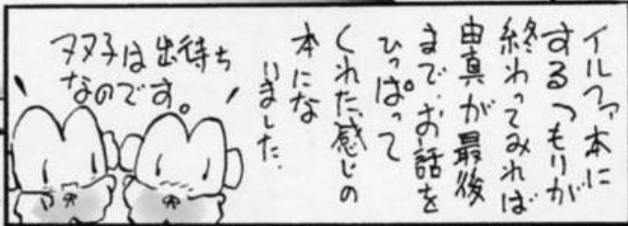 イルファ本に
するつもりが
終わってみれば
由真が最後
まで、お話を
ひっぱって
くれた感じの
本にな
いました。
双子は出待ち
なのです。